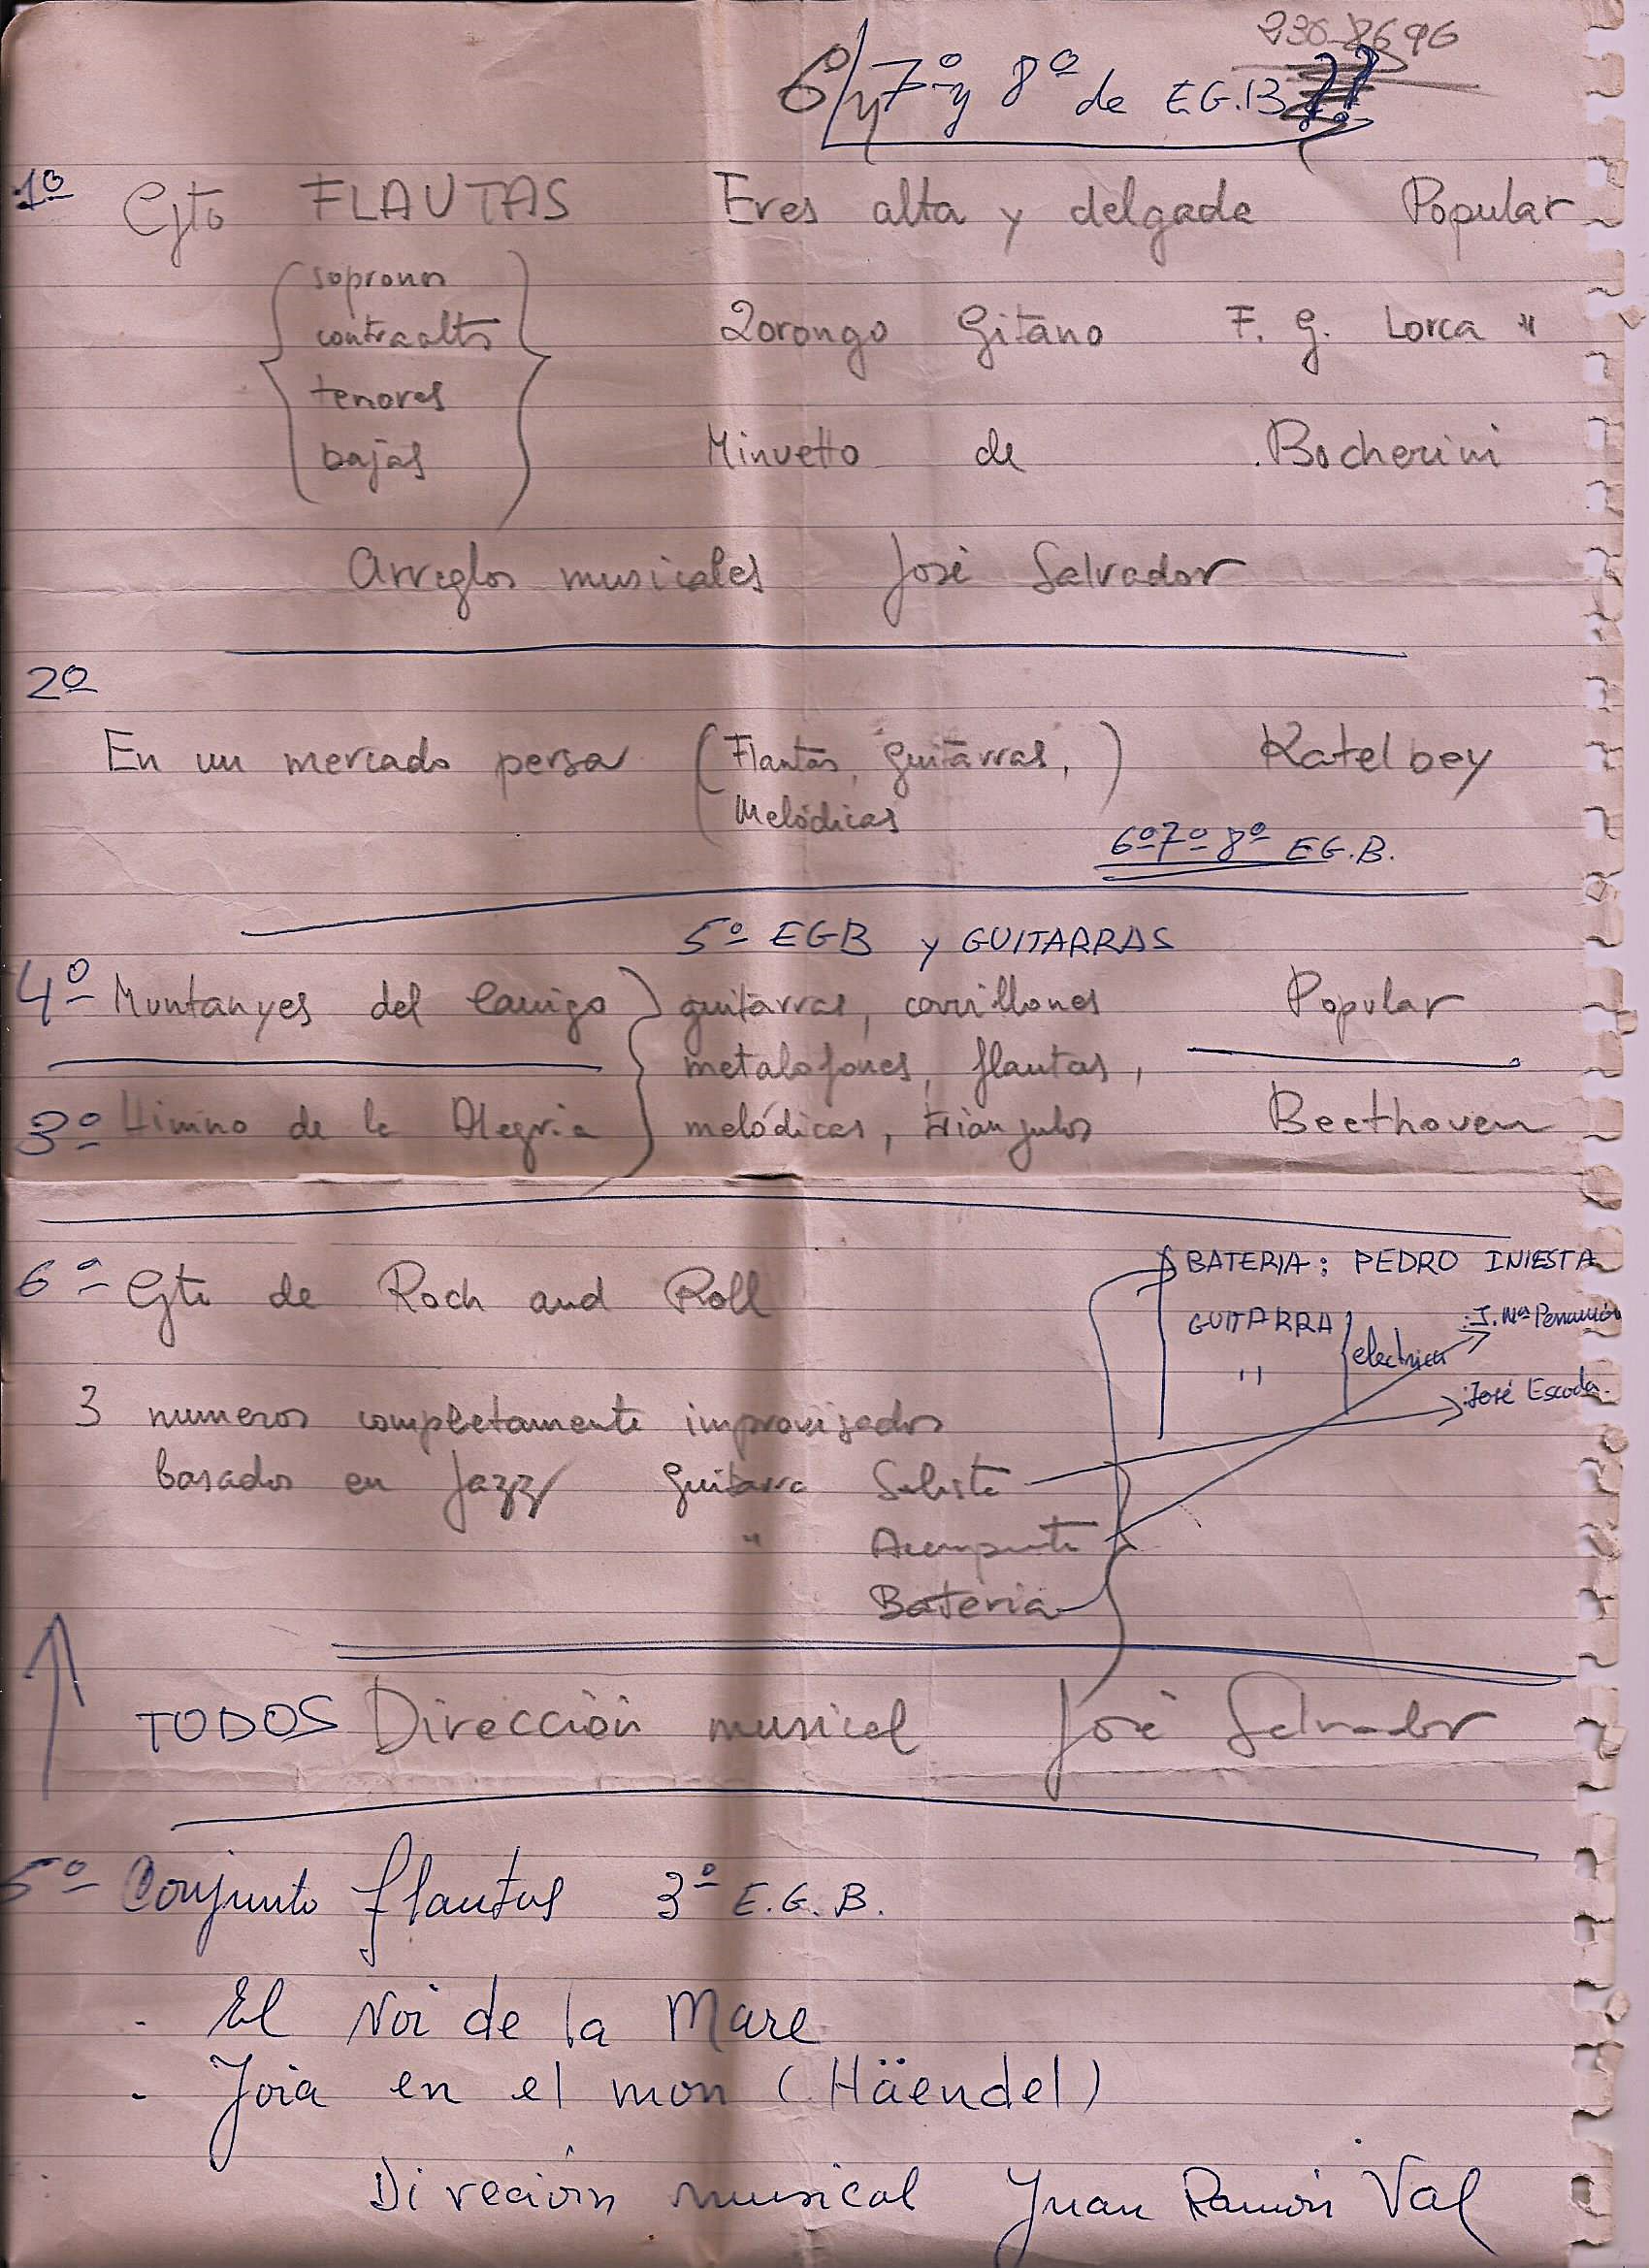 230-8696
6/y 7º y 8º de E.G.B.
1º Cjto FLAUTAS Eres alta y delgada Popular
sopranos
contraaltos Zorongo Gitano F. G. Lorca "
tenores
bajas Minuetto de Bocherini
Arreglos musicales José Salvador
2º
En un mercado persa (Flautas, guitarras, ) Katelbey
Melódicas
6º 7º 8º E.G.B.
5º EGB y GUITARRAS
4º Muntanyes del Canigo guitarras, carrillones Popular
metalofones, flautas,
3º Himno de la Alegria melódicas, triangulos Beethoven
BATERIA: PEDRO INIESTA
6º Cjto de Roch and Roll
GUITARRA electrica : J. Mª
" : José Escoda.
3 numeros completamente improvisados
basados en Jazz guitarra Solista
" Acompante
Bateria
TODOS Dirección musical José Salvador
5º Conjunto flautas 3º E.G.B.
- El Noi de la Mare
- Joia en el mon (Häendel)
Direción musical Juan Ramón Val